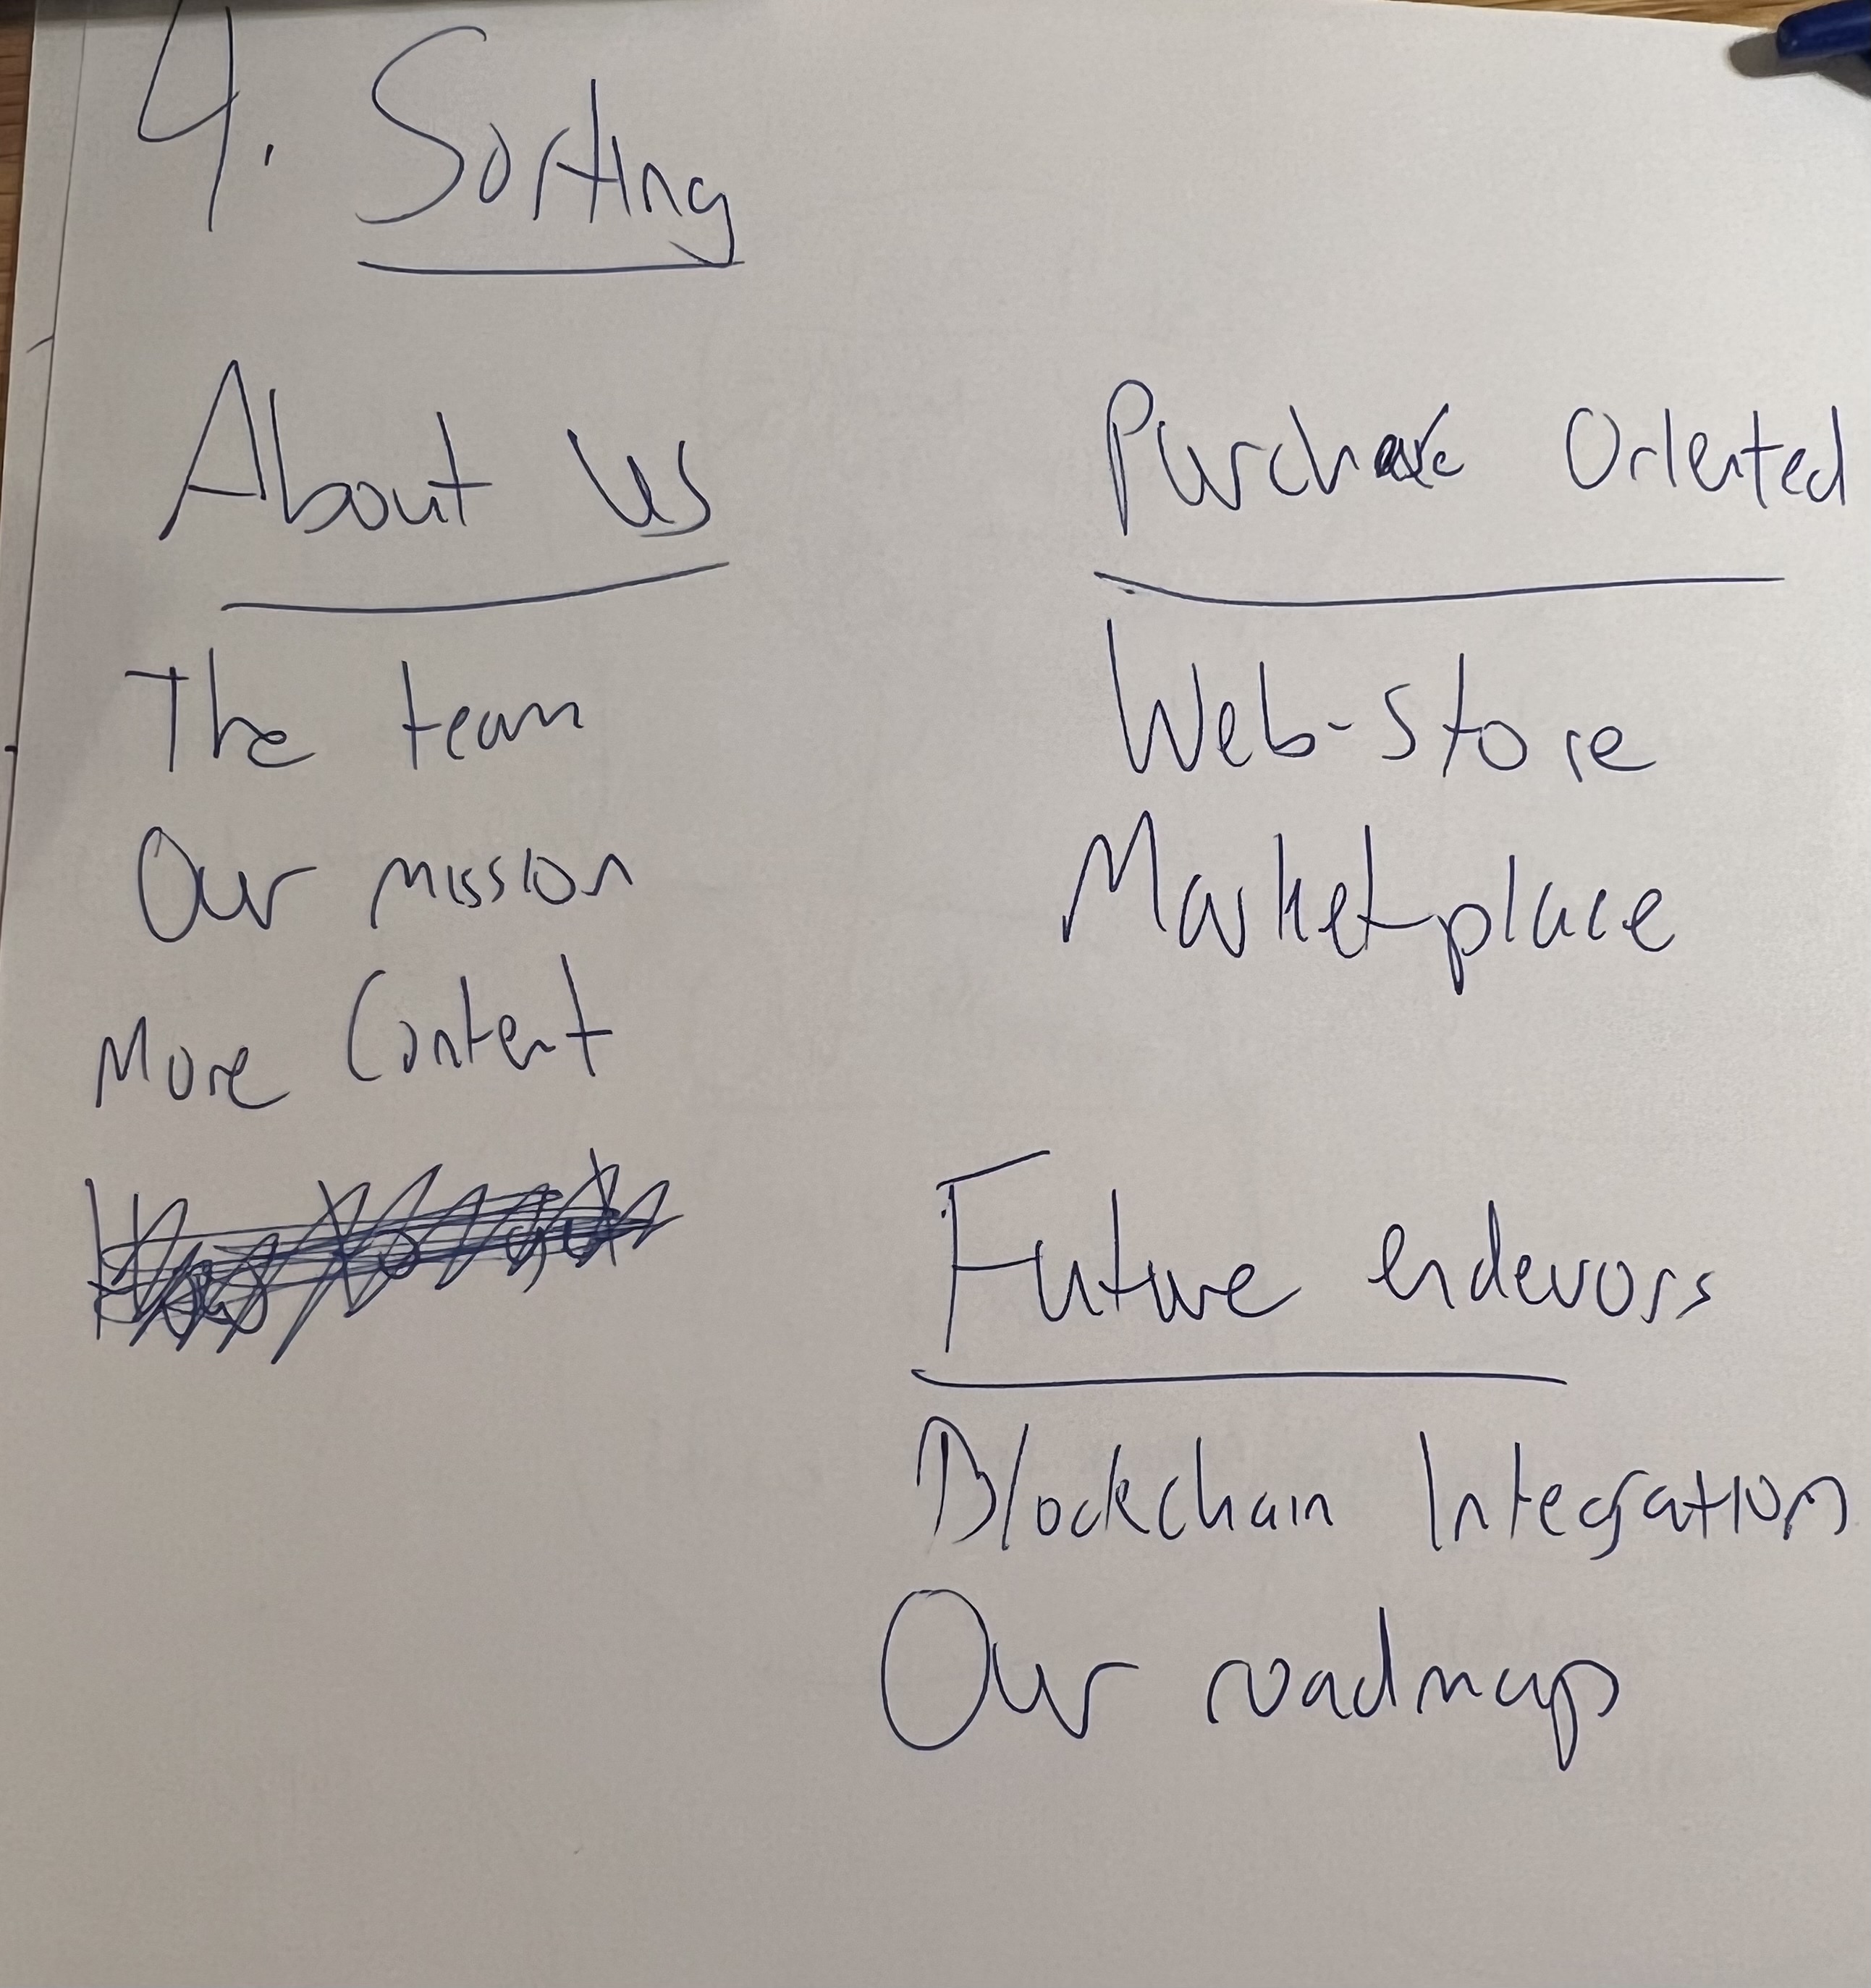 4. Sorting
About us
The team
Our mission
More Content
Purchase Oriented
Web-store
Marketplace
Future endevors
Blockchain Integration
Our roadmap